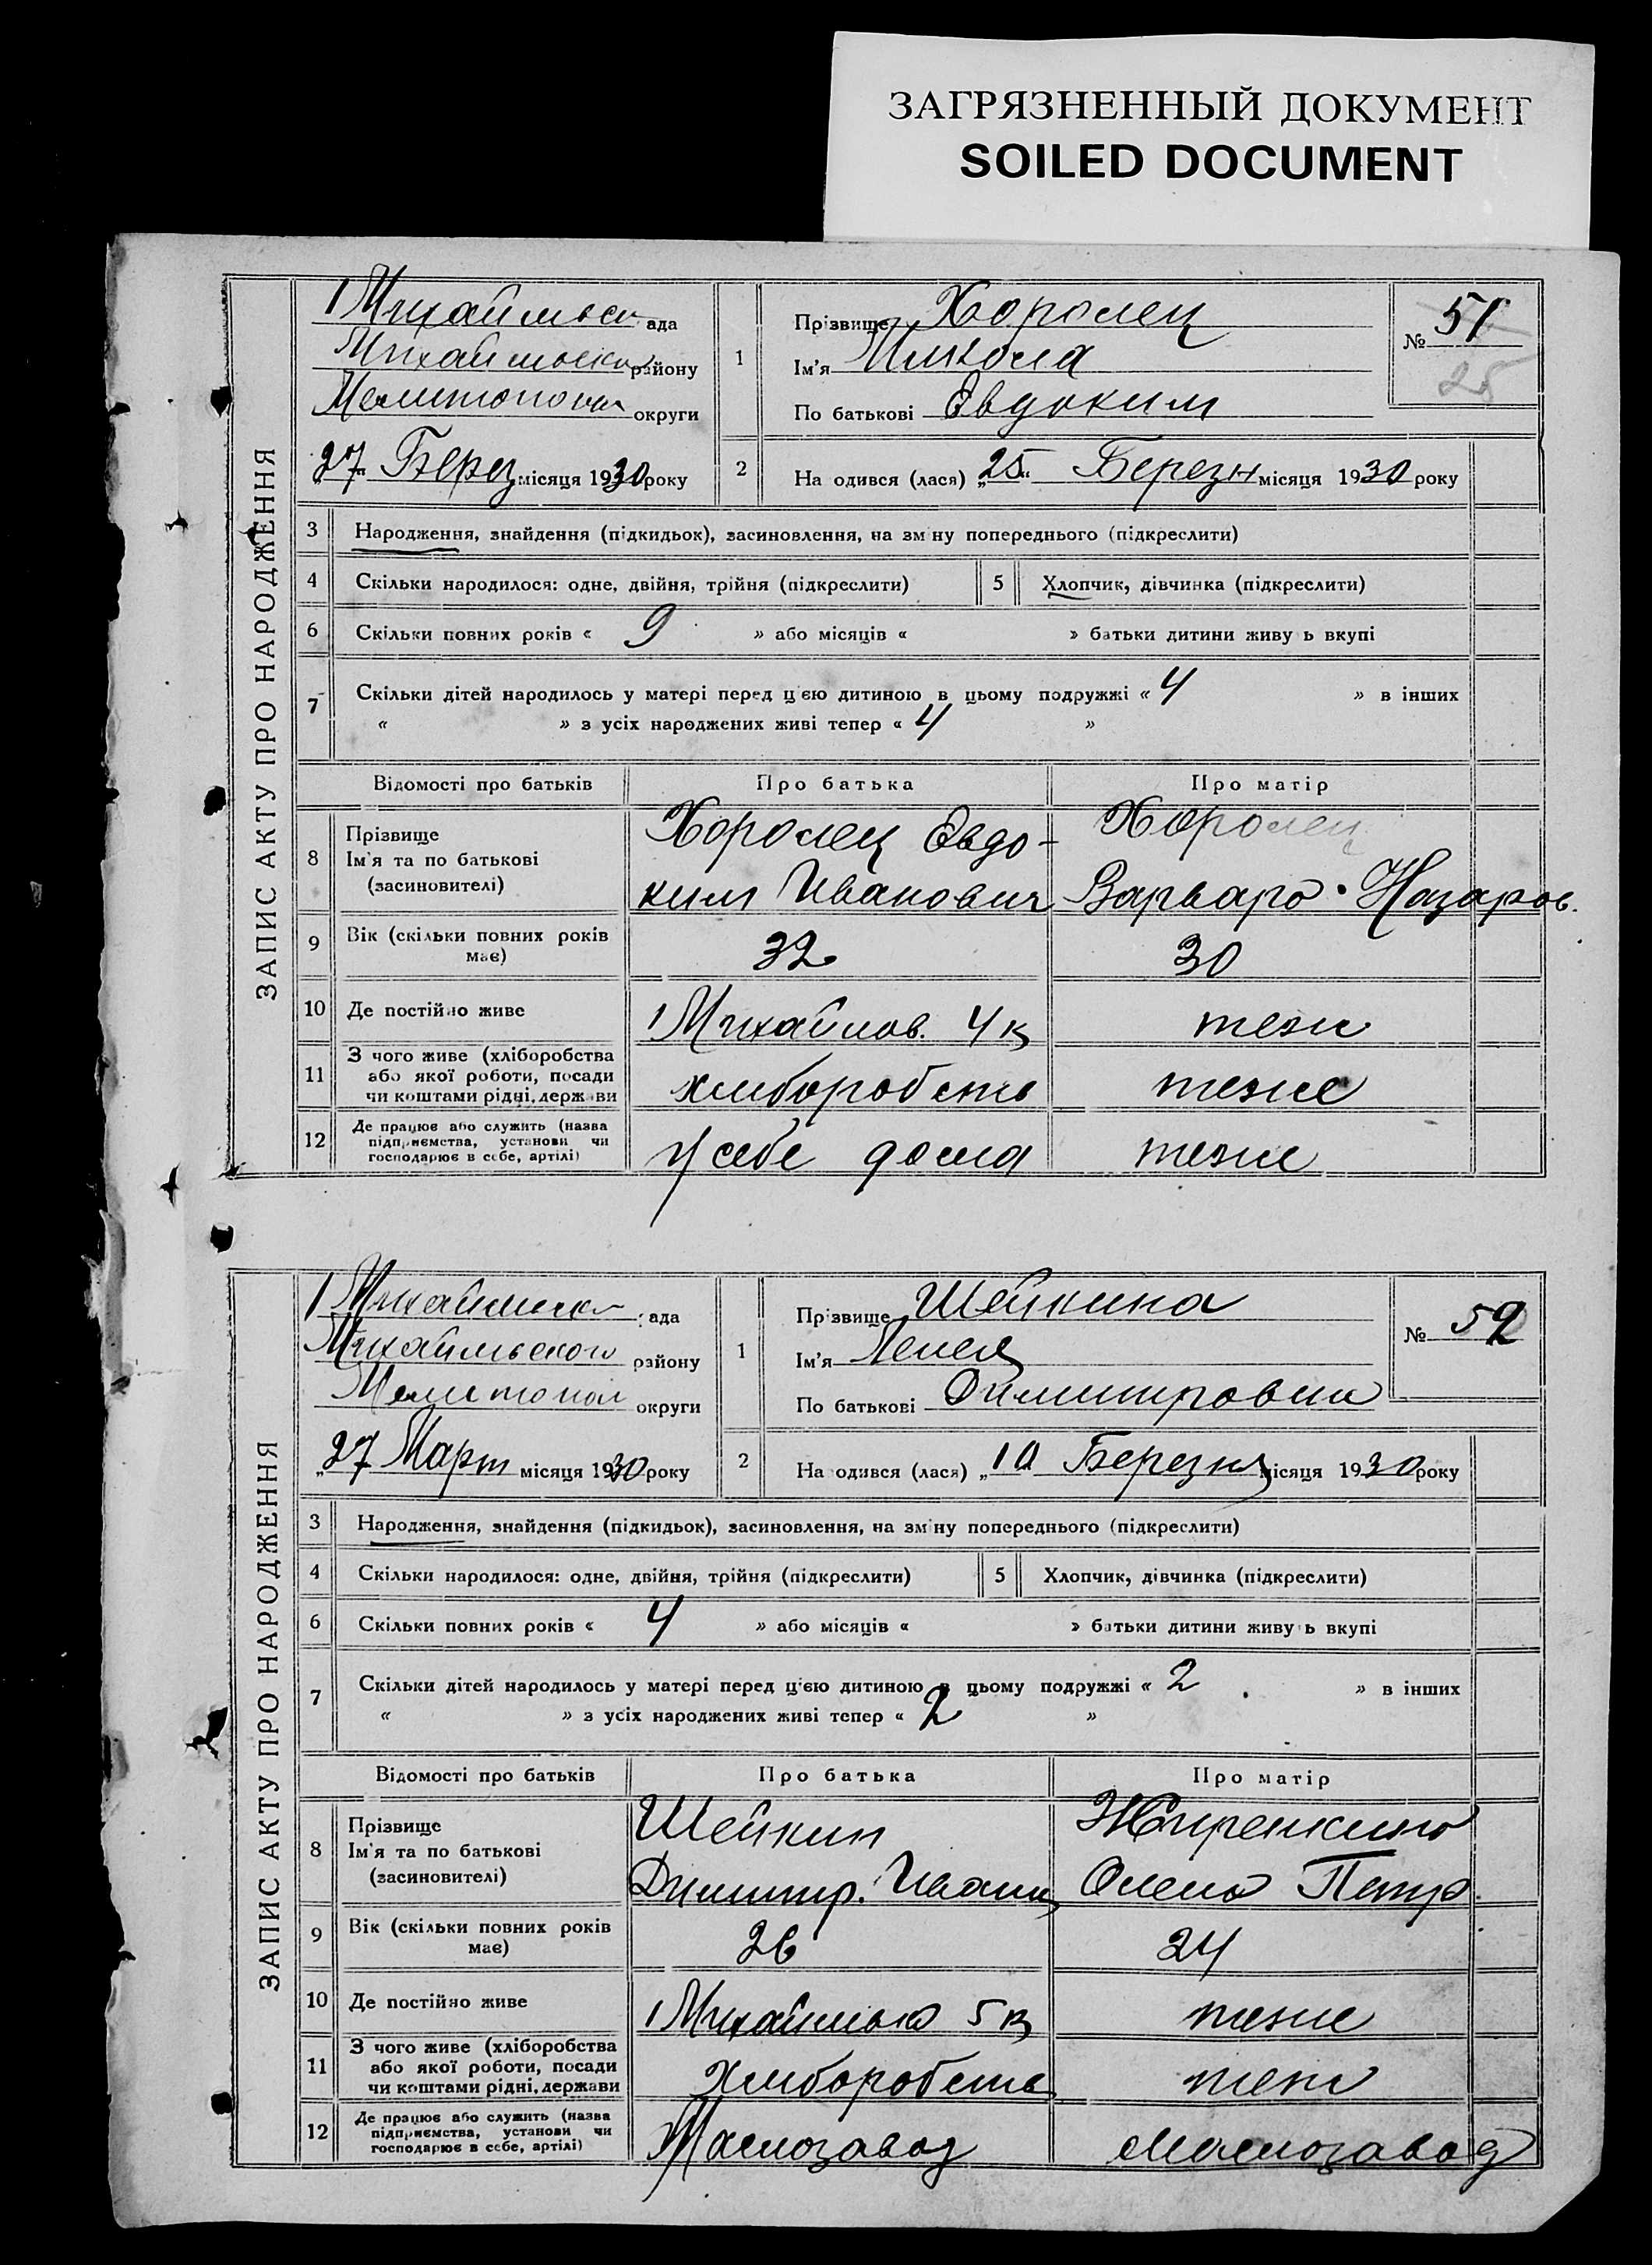 ЗАГРЯЗНЕННЫЙ ДОКУМЕНТ
SOILED DOCUMENT
ЗАПИС АКТУ ПРО НАРОДЖЕННЯ
ада
району
округи
27 Берез місяця 1930 року
1
Прізвище Хоролец
Ім'я Микола
По батькові Евдоким
№ 51
25
2
На одився (лася) „25“ Березн місяця 1930 року
3 Народження, знайдення (підкидьок), засиновлення, на зм ну попереднього (підкреслити)
4 Скільки народилося: одне, двійня, трійня (підкреслити)
5 Хлопчик, дівчинка (підкреслити)
6 Скільки повних років « 9 » або місяців « » батьки дитини живу ь вкупі
7 Скільки дітей народилось у матері перед ц'єю дитиною в цьому подружжі « 4 » в інших
« » з усіх народжених живі тепер « 4 »
Відомості про батьків Про батька Про матір
8 Прізвище
Ім'я та по батькові
(засиновителі)
Хоролец Евдо-
ким Иванович
Хоролец
Варвара Назаров.
9 Вік (скільки повних років
має)
32 30
10 Де постійно живе
Михайлов. 4 к теж
11 З чого живе (хліборобства
або якої роботи, посади
чи коштами рідні, держави
хлиборобств теже
12 Де працює або служить (назва
підприємства, установи чи
господарює в себе, артілі)
У себе дома теже
ЗАПИС АКТУ ПРО НАРОДЖЕННЯ
ада
Михайльского району
Мелитопол округи
„27 Март місяця 1930 року
1
Прізвище Шейкина
Ім'я
По батькові Димитровна
№ 52
2
На одився (лася) „10 Березня місяця 1930 року
3 Народження, знайдення (підкидьок), засиновлення, на зм ну попереднього (підкреслити)
4 Скільки народилося: одне, двійня, трійня (підкреслити)
5 Хлопчик, дівчинка (підкреслити)
6 Скільки повних років « 4 » або місяців « » батьки дитини живу ь вкупі
7 Скільки дітей народилось у матері перед ц'єю дитиною в цьому подружжі « 2 » в інших
« » з усіх народжених живі тепер « 2 »
Відомості про батьків Про батька Про матір
8 Прізвище
Ім'я та по батькові
(засиновителі)
Шейкин
Димитр. Иван
Олена Петр.
9 Вік (скільки повних років
має)
26 24
10 Де постійно живе
5 к теже
11 З чого живе (хліборобства
або якої роботи, посади
чи коштами рідні, держави
Хлиборобств теж
12 Де працює або служить (назва
підприємства, установи чи
господарює в себе, артілі)
Маслозавод Маслозавод